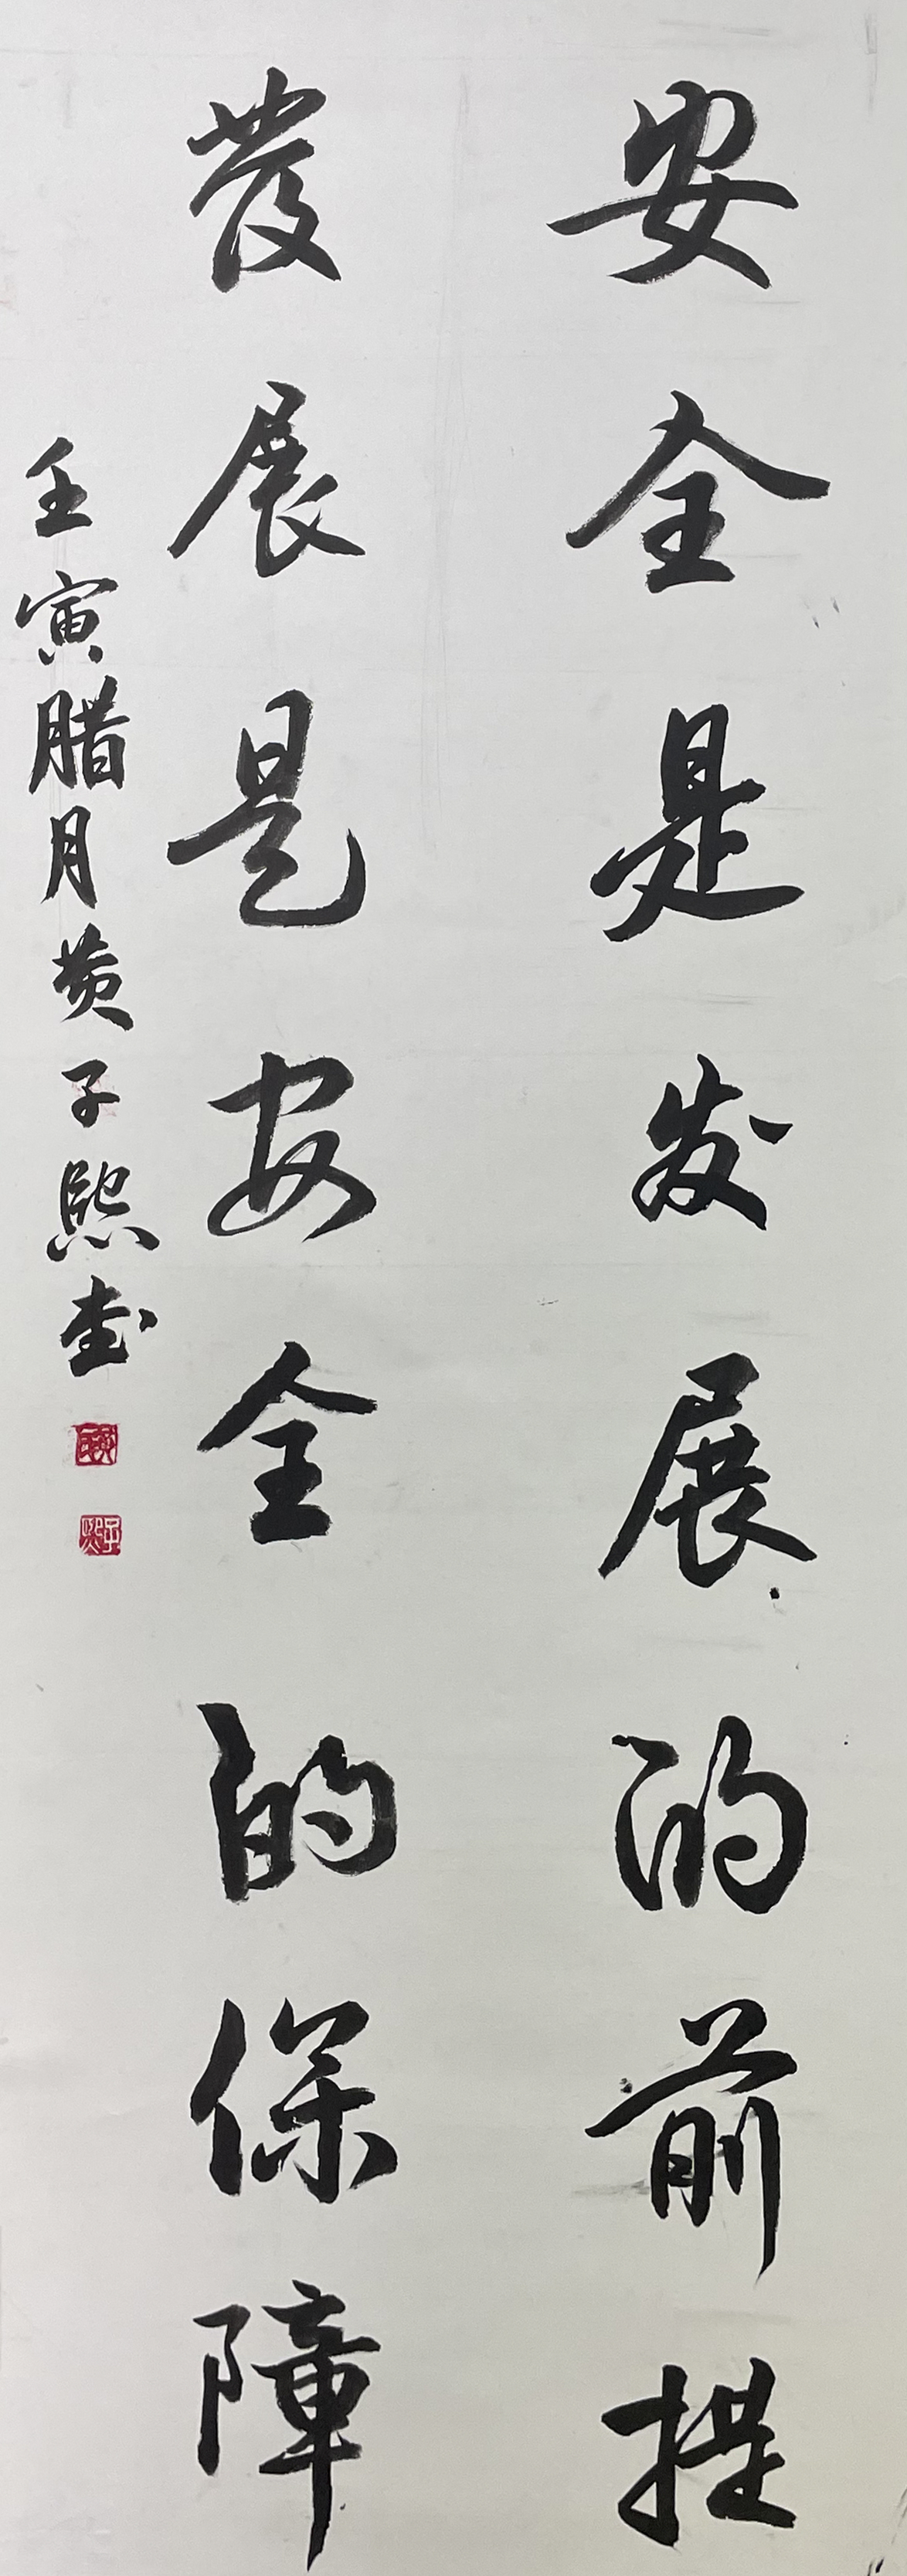 安全是发展的前提
發展是安全的保障
壬寅腊月黄子熙书